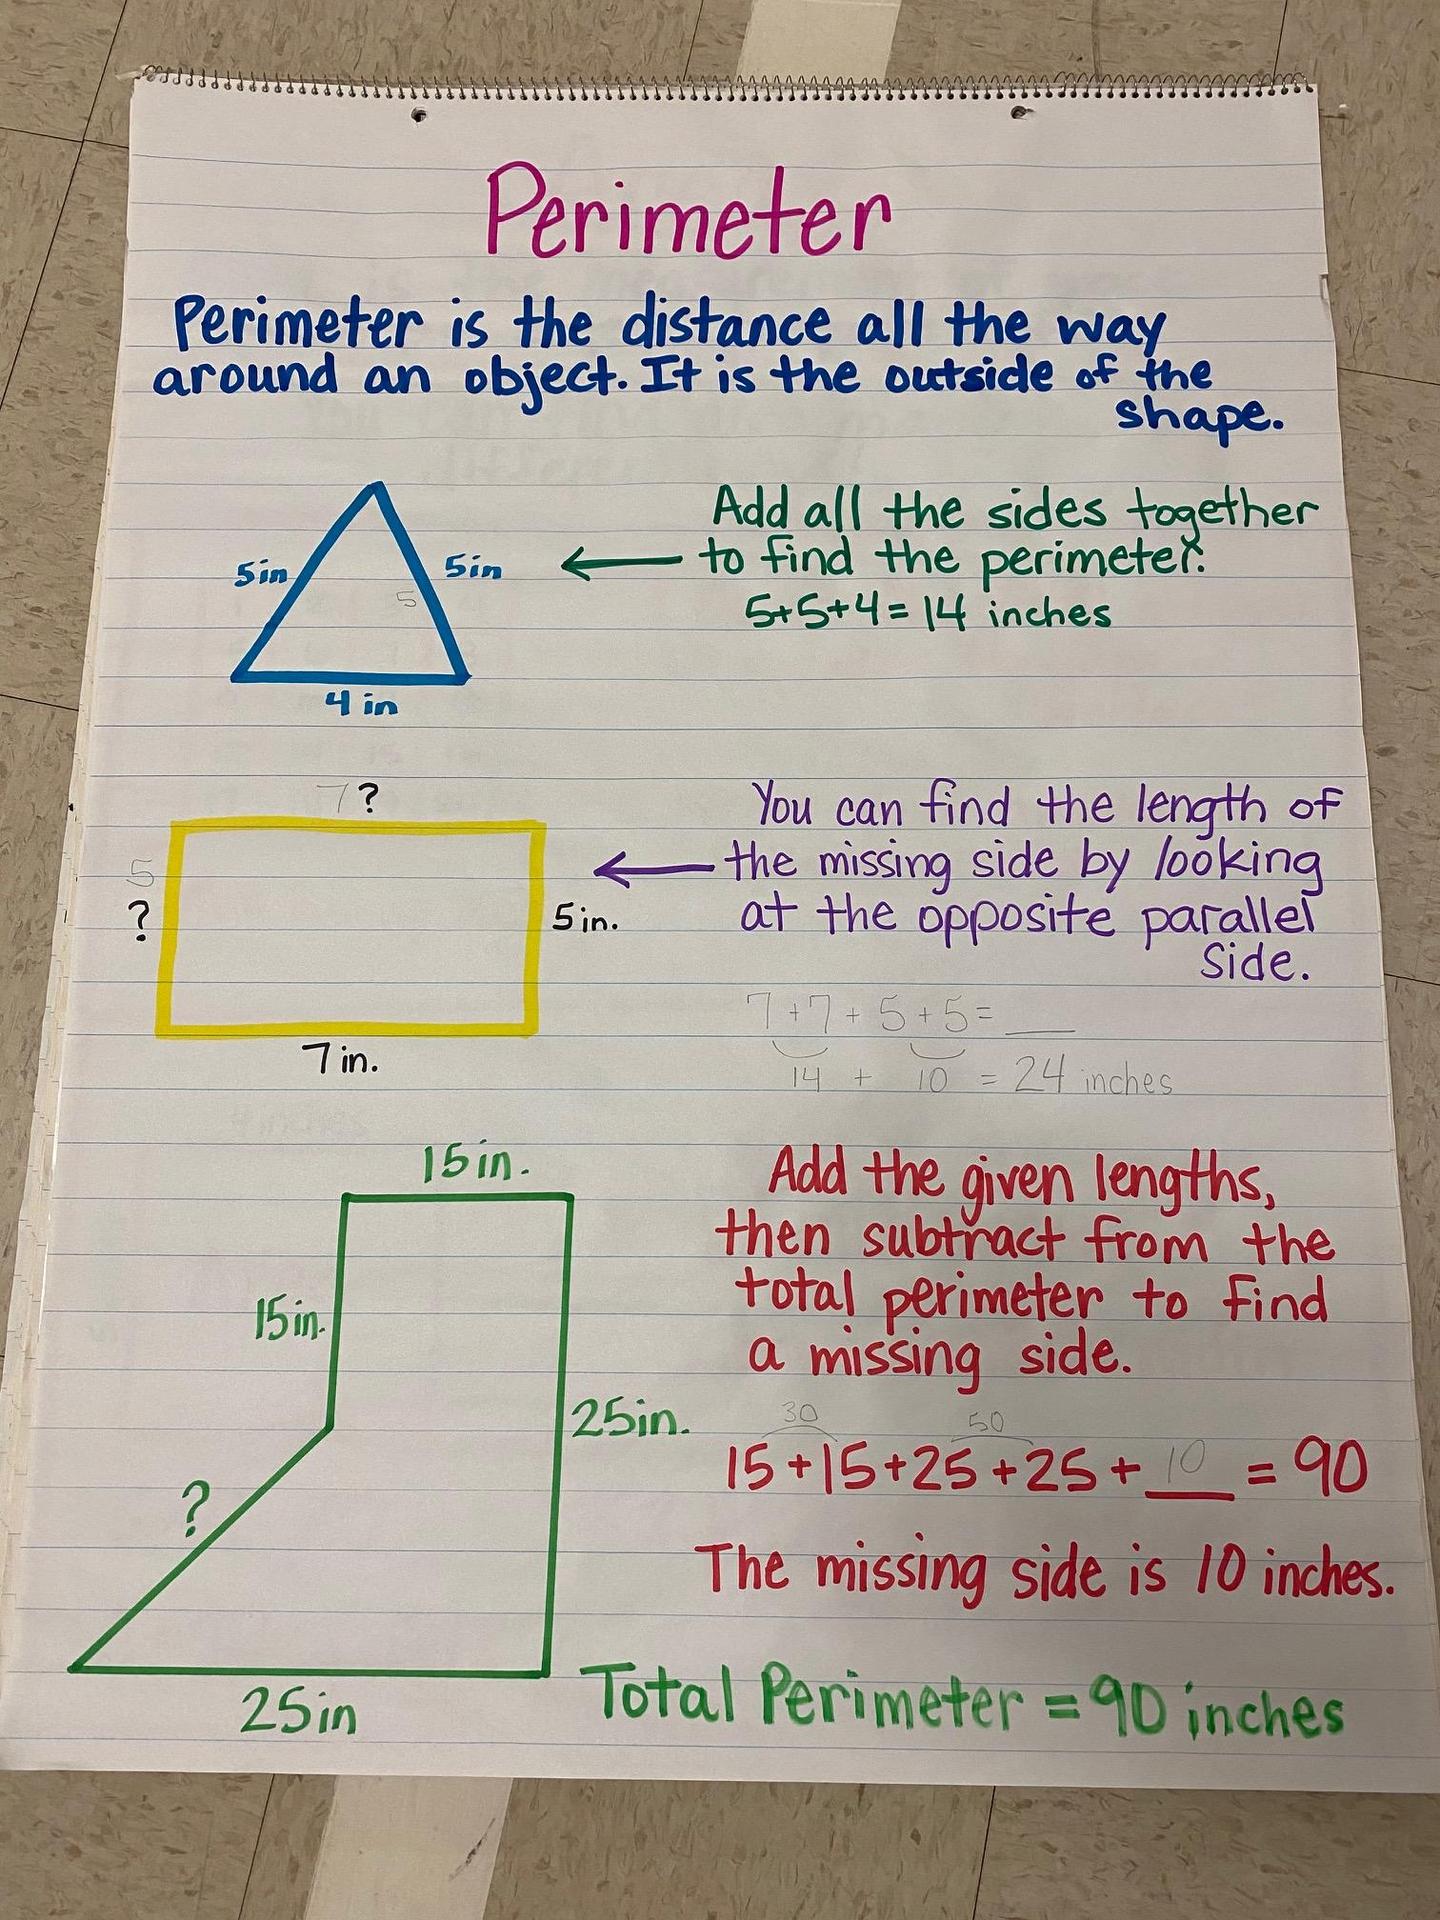 Perimeter
Perimeter is the distance all the way
around an object. It is the outside of the
shape.
5in
5in
5
4 in
Add all the sides together
to find the perimeter.
5+5+4=14 inches
7 ?
5
?
5in.
7in.
You can find the length of
the missing side by looking
at the opposite parallel
side.
7+7+5+5=___
14 + 10 = 24 inches
15in.
15in.
25in.
?
25in
Add the given lengths,
then subtract from the
total perimeter to find
a missing side.
30 50
15+15+25+25+10=90
The missing side is 10 inches.
Total Perimeter = 90 inches